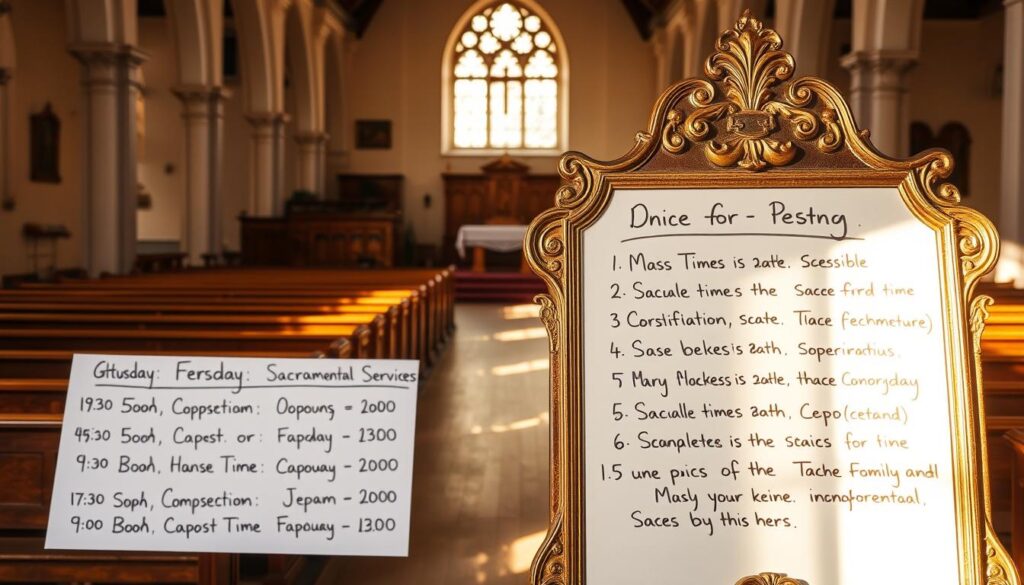 Ghusday: Fersday: Sacramental Services
19.30 5ooh, Coppsetiam: Oopoung = 2000
45:30 5ooh, Capest. or: Fapday - 1300
9:30 Booh, Hanse Time: Capouay - 2000
17:30 Soph, Compsection: Jepam - 2000
9:00 Booh, Capost Time Fapouay - 13.00
Dnice for - Pestng.
1. Mass Times is 2atte. Scessible
2. Saculale times the Sacce frrd time
3 Corslifiation, scate. Tlace fechmeture)
4. Sase bekes is 2ath. Soperiratius.
5 Mary Mockess is 2atle, thace Conorgday
5. Saculle times 2ath, Cepo (cetand)
6. Scanpletes is the scaics for tine
1.5 une prics of the Tache Family andl
Masly your keine. incnoforentaal.
Saces by this hers.